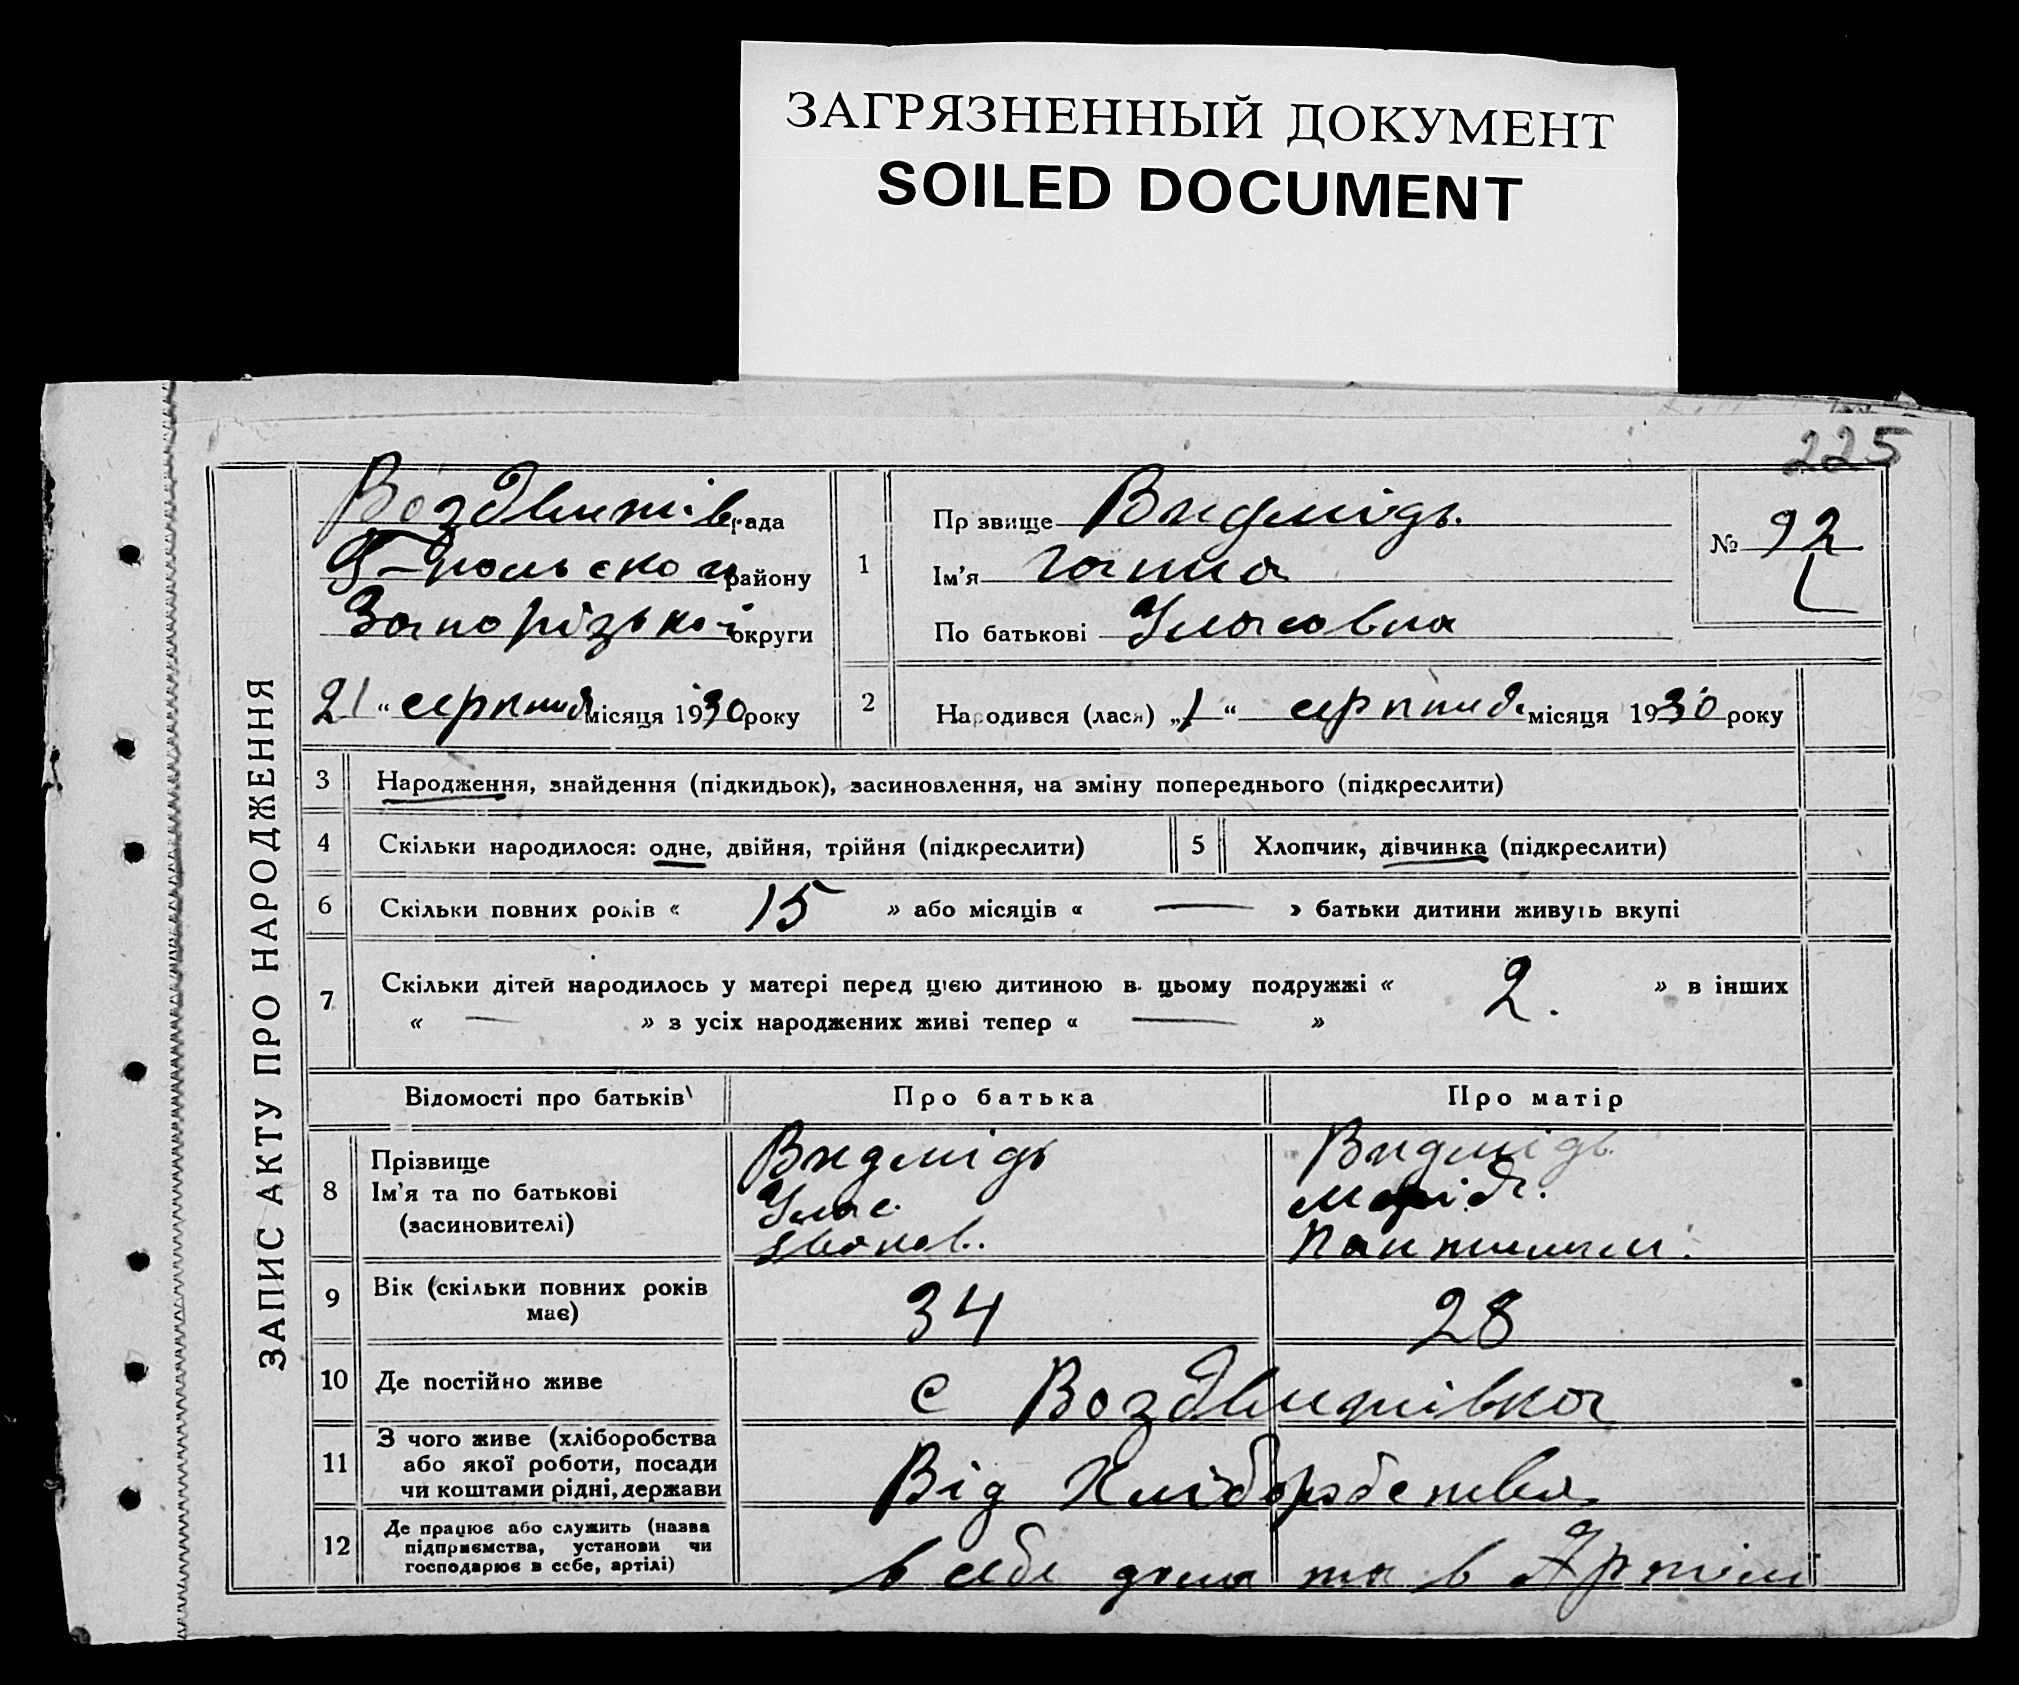 ЗАГРЯЗНЕННЫЙ ДОКУМЕНТ
SOILED DOCUMENT
225
ЗАПИС АКТУ ПРО НАРОДЖЕННЯ
Воздвижів рада
Г-Польского району
Запорізької округи
21 “ серпня місяця 1930 року
1
Пр звище Видмідь.
Ім’я Ганна
По батькові Уласовна
№ 92
2
Народився (лася) „1“ серпня місяця 1930 року
3 Народження, знайдення (підкидьок), засиновлення, на зміну попереднього (підкреслити)
4 Скільки народилося: одне, двійня, трійня (підкреслити) 5 Хлопчик, дівчинка (підкреслити)
6 Скільки повних років « 15 » або місяців « — » батьки дитини живуть вкупі
7 Скільки дітей народилось у матері перед цією дитиною в цьому подружжі « 2. » в інших
« — » з усіх народжених живі тепер « — »
Відомості про батьків Про батька Про матір
8 Прізвище Видмідь Видмідь.
Ім’я та по батькові Улас. Марія.
(засиновителі) Іванов. Пантилим.
9 Вік (скільки повних років має) 34 28
10 Де постійно живе с Воздвижівка
11 З чого живе (хліборобства
або якої роботи, посади
чи коштами рідні, держави Від Хліборобства
12 Де працює або служить (назва
підприємства, установи чи
господарює в себе, артілі) в себе дома та в Артілі